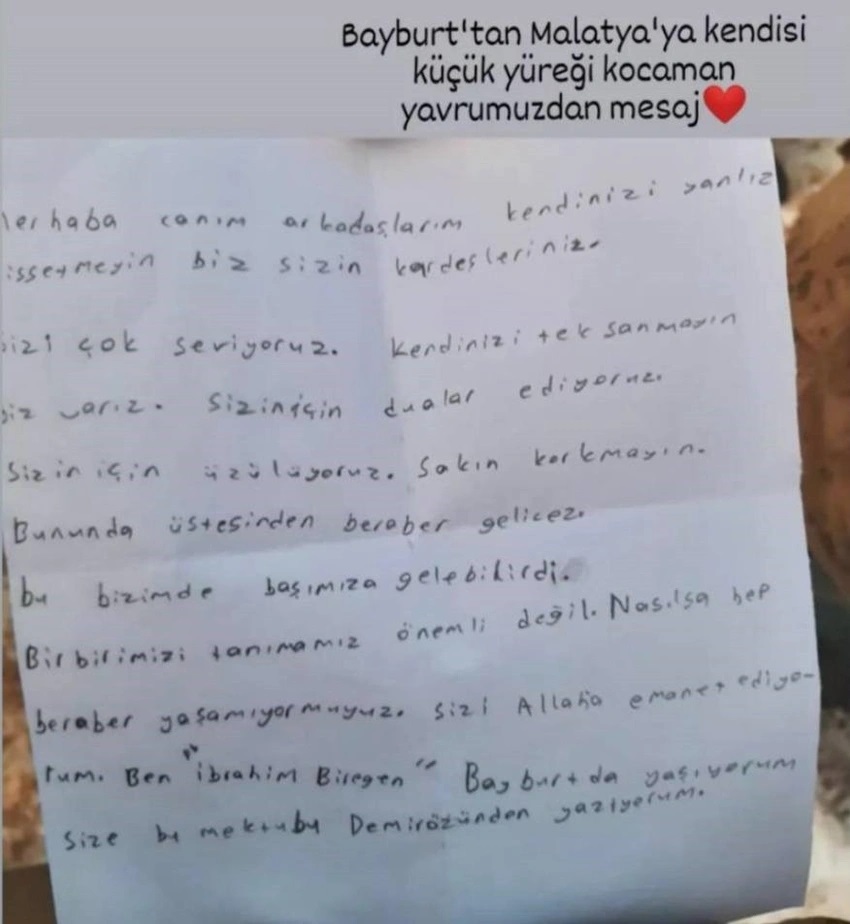 Bayburt'tan Malatya'ya kendisi
küçük yüreği kocaman
yavrumuzdan mesaj❤️
erhaba canım arkadaşlarım kendinizi yanlız
issetmeyin biz sizin kardeşleriniz.
izi çok seviyoruz. Kendinizi tek sanmayın
iz varız. Sizin için dualar ediyoruz.
Sizin için üzülüyoruz. Sakın korkmayın.
Bununda üstesinden beraber gelicez.
bu bizimde başımıza gelebilirdi.
Birbirimizi tanımamız önemli değil. Nasılsa hep
beraber yaşamıyormuyuz. Sizi Allaha emanet ediyo-
rum. Ben "İbrahim Biregen" Bayburtda yaşıyorum
Size bu mektubu Demirözünden yazıyorum.